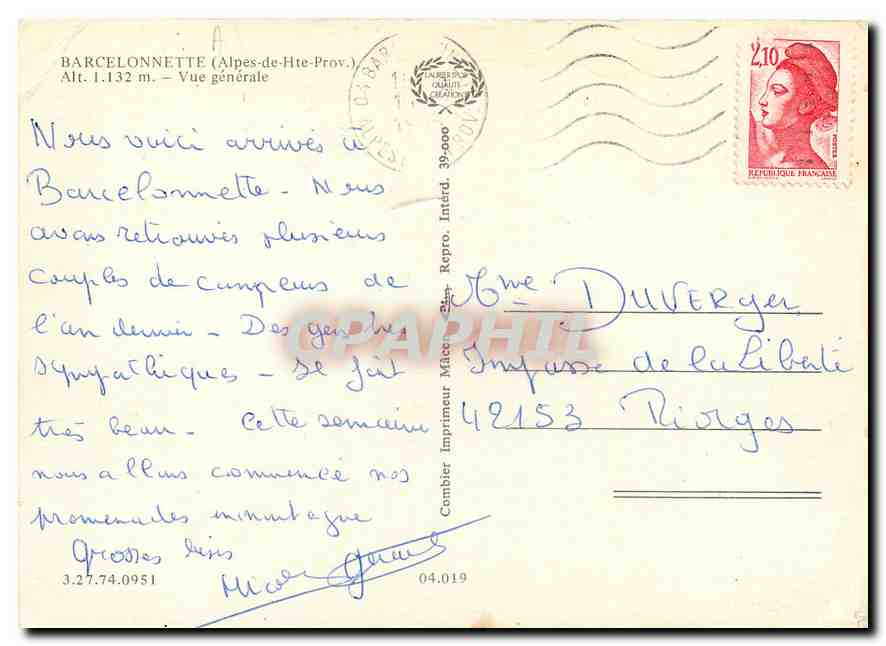 BARCELONNETTE (Alpes-de-Hte-Prov.)
Alt. 1.132 m. – Vue générale
Nous voici arrivés à
Barcelonnette - Nous
avons retrouvés plusieurs
couples de campeurs de
l'an dernier - Des gens très
sympathiques - Il fait
très beau - Cette semaine
nous allons commencé nos
promenades en montagne
Grosses bises
3.27.74.0951
04.019
Combier Imprimeur Mâcon Repro. Interd. 39-000
LAURIER D'OR
QUALITÉ
CRÉATION
2,10
POSTES
REPUBLIQUE FRANÇAISE
Mme DUVERger
Impasse de la Liberté
42153 Riorges
CPAPHIL